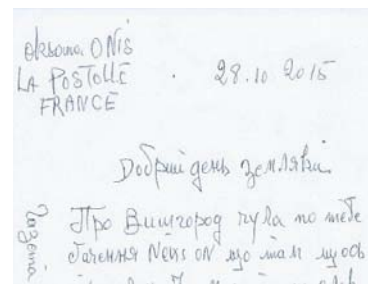 Oksana ONiS
LA POSTOLLE
FRANCE
28.10 2015
Добрий день земляки.
Про Вишгород чула по теле
бачення News ON що там
Газета